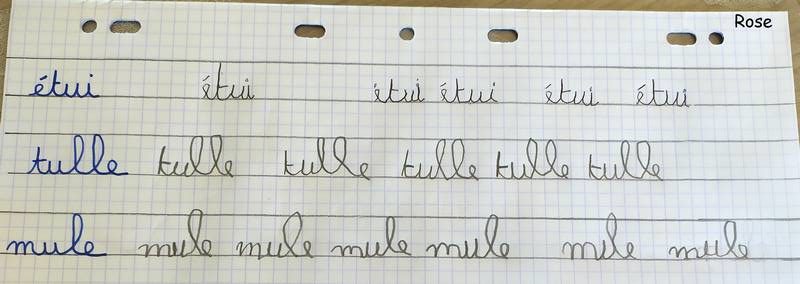 Rose
étui étui étui étui étui étui
tulle tulle tulle tulle tulle tulle
mule mule mule mule mule mule mule